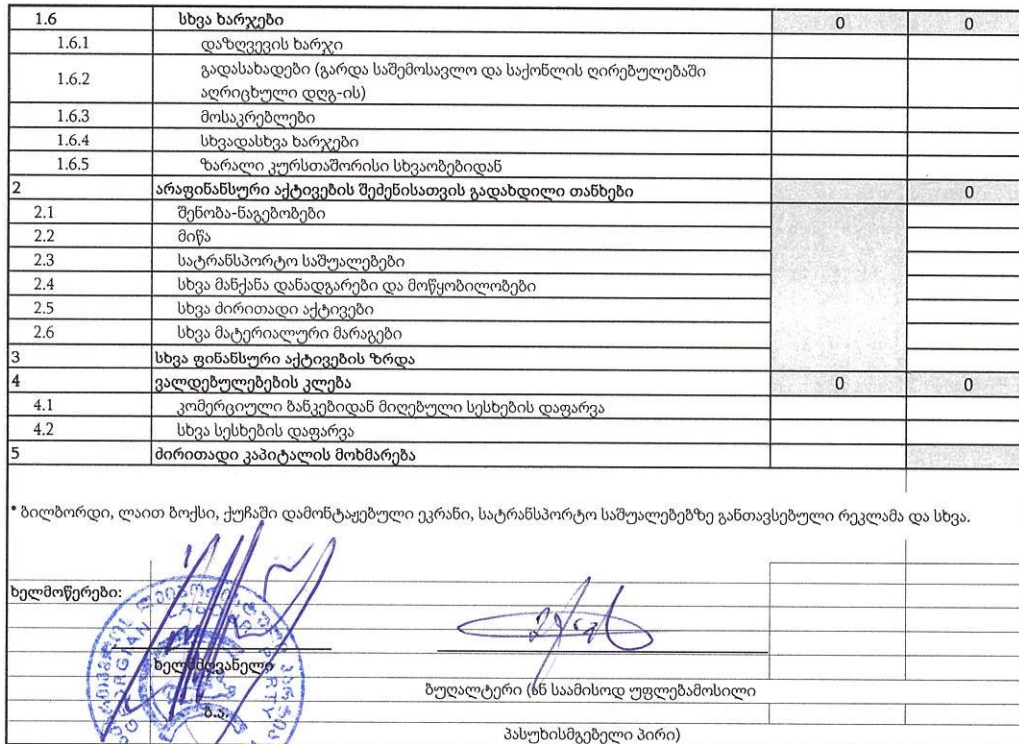 1.6 სხვა ხარჯები 0 0
1.6.1 დაზღვევის ხარჯი
1.6.2 გადასახადები (გარდა საშემოსავლო და საქონლის ღირებულებაში
აღრიცხული დღგ-ის)
1.6.3 მოსაკრებლები
1.6.4 სხვადასხვა ხარჯები
1.6.5 ზარალი კურსთაშორისი სხვაობებიდან
2 არაფინანსური აქტივების შეძენისათვის გადახდილი თანხები 0
2.1 შენობა-ნაგებობები
2.2 მიწა
2.3 სატრანსპორტო საშუალებები
2.4 სხვა მანქანა დანადგარები და მოწყობილობები
2.5 სხვა ძირითადი აქტივები
2.6 სხვა მატერიალური მარაგები
3 სხვა ფინანსური აქტივების ზრდა
4 ვალდებულებების კლება 0 0
4.1 კომერციული ბანკებიდან მიღებული სესხების დაფარვა
4.2 სხვა სესხების დაფარვა
5 ძირითადი კაპიტალის მოხმარება
* ბილბორდი, ლაით ბოქსი, ქუჩაში დამონტაჟებული ეკრანი, სატრანსპორტო საშუალებებზე განთავსებული რეკლამა და სხვა.
ხელმოწერები:
ხელმძღვანელი
ბუღალტერი (ან საამისოდ უფლებამოსილი
ბ.ა.
პასუხისმგებელი პირი)
GEORGIAN LABOR PARTY